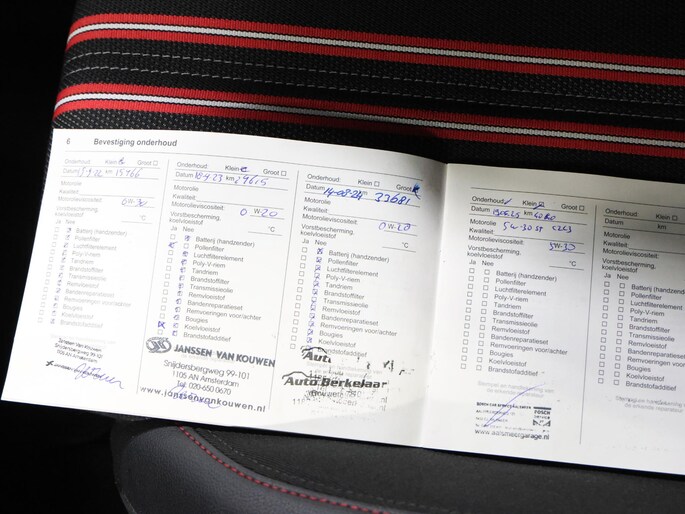 6 Bevestiging onderhoud
Onderhoud: Klein Groot
Datum km 15466
Motorolie
Kwaliteit:
Motorolieviscositeit: 0 W-30
Vorstbescherming,
koelvloeistof °C
Ja Nee
Batterij (handzender)
Pollenfilter
Luchtfilterelement
Poly-V-riem
Tandriem
Brandstoffilter
Transmissieolie
Remvloeistof
Bandenreparatieset
Remvoeringen voor/achter
Bougies
Koelvloeistof
Brandstofadditief
Janssen Van Kouwen
Snijdersbergweg 99-101
1105 AN Amsterdam
Onderhoud: Klein Groot
Datum km 29615
Motorolie
Kwaliteit:
Motorolieviscositeit: 0 W-20
Vorstbescherming,
koelvloeistof °C
Ja Nee
Batterij (handzender)
Pollenfilter
Luchtfilterelement
Poly-V-riem
Tandriem
Brandstoffilter
Transmissieolie
Remvloeistof
Bandenreparatieset
Remvoeringen voor/achter
Bougies
Koelvloeistof
Brandstofadditief
JANSSEN VAN KOUWEN
Snijdersbergweg 99-101
1105 AN Amsterdam
Tel: 020-650.0670
www.janssenvankouwen.nl
Onderhoud: Klein Groot
Datum 14-08-24 km 33681
Motorolie
Kwaliteit:
Motorolieviscositeit: 0 W-20
Vorstbescherming,
koelvloeistof °C
Ja Nee
Batterij (handzender)
Pollenfilter
Luchtfilterelement
Poly-V-riem
Tandriem
Brandstoffilter
Transmissieolie
Remvloeistof
Bandenreparatieset
Remvoeringen voor/achter
Bougies
Koelvloeistof
Brandstofadditief
Auto Berkelaar
Onderhoud: Klein Groot
Datum km
Motorolie 5W-30 ST
Kwaliteit:
Motorolieviscositeit: 5 W-30
Vorstbescherming,
koelvloeistof °C
Ja Nee
Batterij (handzender)
Pollenfilter
Luchtfilterelement
Poly-V-riem
Tandriem
Brandstoffilter
Transmissieolie
Remvloeistof
Bandenreparatieset
Remvoeringen voor/achter
Bougies
Koelvloeistof
Brandstofadditief
www.aalsmeergarage.nl
Onderhoud: Klein Groot
Datum km
Motorolie
Kwaliteit:
Motorolieviscositeit: W-
Vorstbescherming,
koelvloeistof
Ja Nee
Batterij (handzender)
Pollenfilter
Luchtfilterelement
Poly-V-riem
Tandriem
Brandstoffilter
Transmissieolie
Remvloeistof
Bandenreparatieset
Remvoeringen voor
Bougies
Koelvloeistof
Brandstofadditief